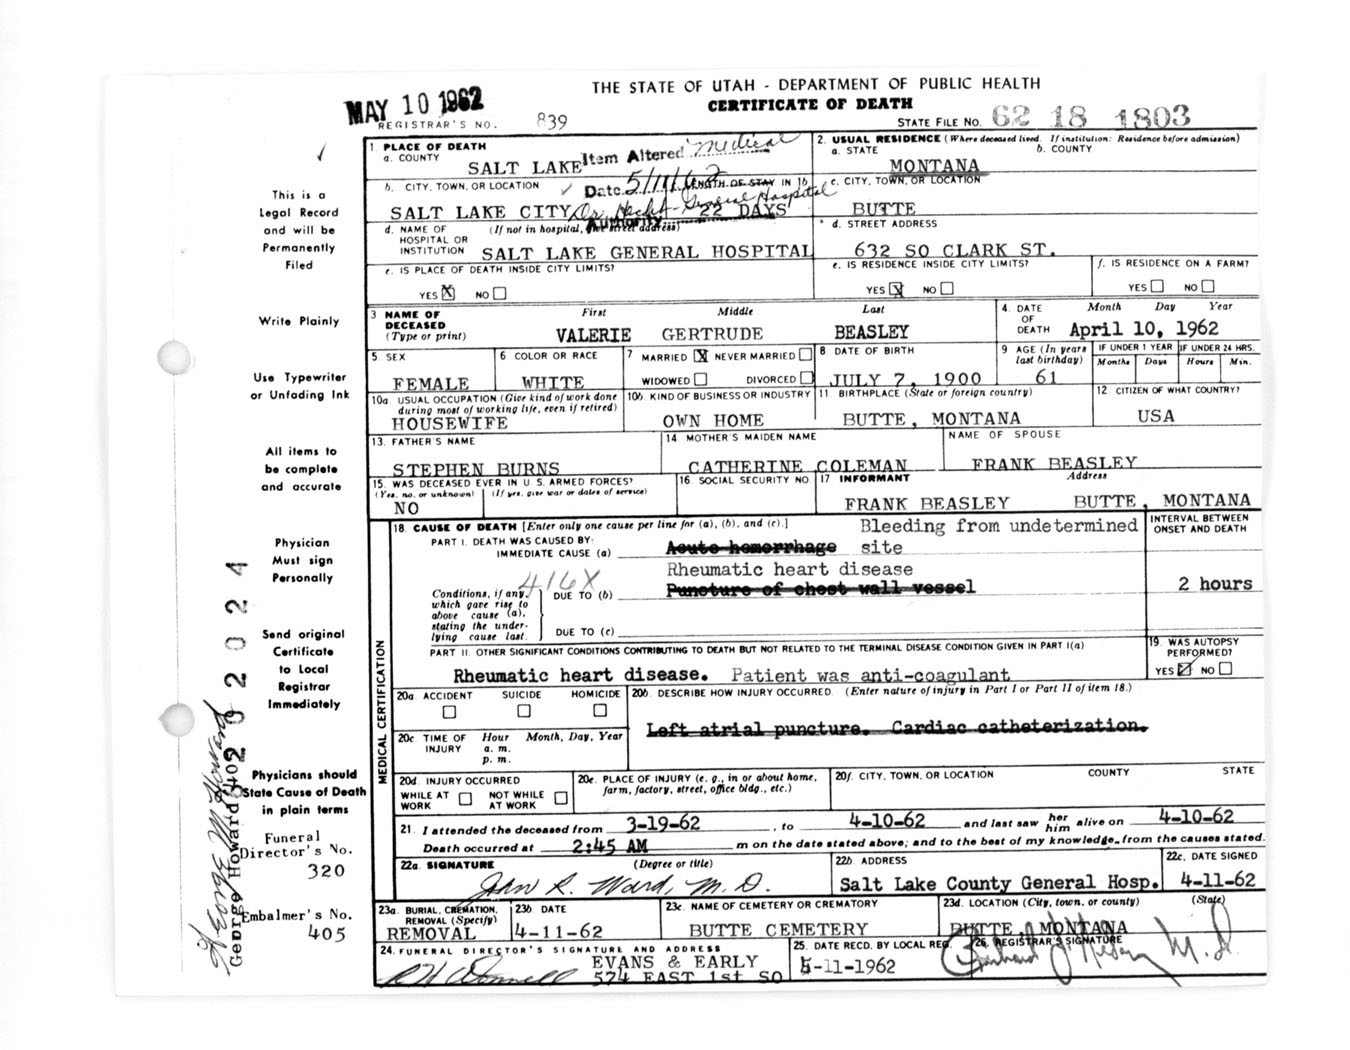 THE STATE OF UTAH - DEPARTMENT OF PUBLIC HEALTH
CERTIFICATE OF DEATH
MAY 10 1962
REGISTRAR'S NO. 839
STATE FILE NO. 62 18 1803
1. PLACE OF DEATH
a. COUNTY
SALT LAKE
Item Altered Medical
2. USUAL RESIDENCE (Where deceased lived. If institution: Residence before admission)
a. STATE b. COUNTY
MONTANA
b. CITY, TOWN, OR LOCATION
Date 5/11/62 LENGTH OF STAY IN 1b
c. CITY, TOWN, OR LOCATION
SALT LAKE CITY Dr. Hecht - General Hospital 22 DAYS
BUTTE
Authority
d. NAME OF HOSPITAL OR INSTITUTION
(If not in hospital, give street address)
SALT LAKE GENERAL HOSPITAL
d. STREET ADDRESS
632 SO CLARK ST.
e. IS PLACE OF DEATH INSIDE CITY LIMITS?
YES X NO
e. IS RESIDENCE INSIDE CITY LIMITS?
YES X NO
f. IS RESIDENCE ON A FARM?
YES NO
3 NAME OF DECEASED (Type or print)
First Middle Last
VALERIE GERTRUDE BEASLEY
4. DATE OF DEATH
Month Day Year
April 10, 1962
5. SEX
FEMALE
6 COLOR OR RACE
WHITE
7 MARRIED X NEVER MARRIED
WIDOWED DIVORCED
8 DATE OF BIRTH
JULY 7, 1900
9 AGE (In years last birthday)
61
IF UNDER 1 YEAR IF UNDER 24 HRS.
Months Days Hours Min.
10a. USUAL OCCUPATION (Give kind of work done during most of working life, even if retired)
HOUSEWIFE
10b. KIND OF BUSINESS OR INDUSTRY
OWN HOME
11. BIRTHPLACE (State or foreign country)
BUTTE, MONTANA
12 CITIZEN OF WHAT COUNTRY?
USA
13. FATHER'S NAME
STEPHEN BURNS
14 MOTHER'S MAIDEN NAME
CATHERINE COLEMAN
NAME OF SPOUSE
FRANK BEASLEY
15. WAS DECEASED EVER IN U. S. ARMED FORCES?
(Yes, no, or unknown) (If yes, give war or dates of service)
NO
16 SOCIAL SECURITY NO.
17 INFORMANT Address
FRANK BEASLEY BUTTE, MONTANA
18. CAUSE OF DEATH [Enter only one cause per line for (a), (b), and (c).]
PART I. DEATH WAS CAUSED BY:
IMMEDIATE CAUSE (a)
Bleeding from undetermined
Acute hemorrhage site
INTERVAL BETWEEN ONSET AND DEATH
416X
Conditions, if any, which gave rise to above cause (a), stating the underlying cause last.
DUE TO (b)
Rheumatic heart disease
Puncture of chest wall vessel
2 hours
DUE TO (c)
PART II. OTHER SIGNIFICANT CONDITIONS CONTRIBUTING TO DEATH BUT NOT RELATED TO THE TERMINAL DISEASE CONDITION GIVEN IN PART I(a)
Rheumatic heart disease. Patient was anti-coagulant
19. WAS AUTOPSY PERFORMED?
YES NO
20a. ACCIDENT SUICIDE HOMICIDE
20b. DESCRIBE HOW INJURY OCCURRED. (Enter nature of injury in Part I or Part II of item 18.)
Left atrial puncture. Cardiac catheterization.
20c. TIME OF INJURY
Hour Month, Day, Year
a. m.
p. m.
20d. INJURY OCCURRED
WHILE AT WORK NOT WHILE AT WORK
20e. PLACE OF INJURY (e. g., in or about home, farm, factory, street, office bldg., etc.)
20f. CITY, TOWN, OR LOCATION COUNTY STATE
21. I attended the deceased from 3-19-62, to 4-10-62 and last saw her him alive on 4-10-62
Death occurred at 2:45 AM m on the date stated above; and to the best of my knowledge, from the causes stated.
22a. SIGNATURE (Degree or title)
John R. Ward, M.D.
22b. ADDRESS
Salt Lake County General Hosp.
22c. DATE SIGNED
4-11-62
23a. BURIAL, CREMATION, REMOVAL (Specify)
REMOVAL
23b DATE
4-11-62
23c. NAME OF CEMETERY OR CREMATORY
BUTTE CEMETERY
23d. LOCATION (City, town, or county) (State)
BUTTE, MONTANA
24. FUNERAL DIRECTOR'S SIGNATURE AND ADDRESS
EVANS & EARLY
574 EAST 1st SO
25. DATE RECD. BY LOCAL REG.
5-11-1962
26. REGISTRAR'S SIGNATURE
M.D.
MEDICAL CERTIFICATION
This is a
Legal Record
and will be
Permanently
Filed
Write Plainly
Use Typewriter
or Unfading Ink
All items to
be complete
and accurate
Physician
Must sign
Personally
Send original
Certificate
to Local
Registrar
Immediately
Physicians should
State Cause of Death
in plain terms
Funeral
Director's No.
320
Embalmer's No.
405
2 0 2 2 0 2 4
George Howard 402